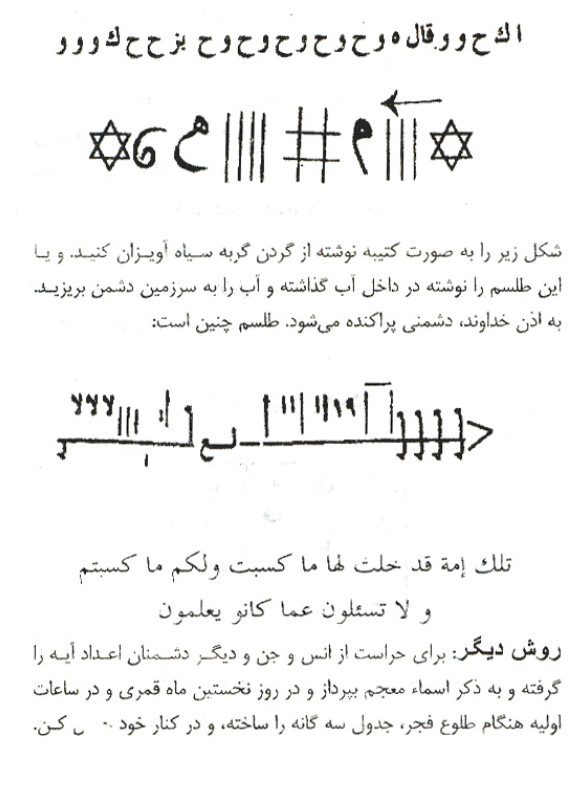 ا ك ح و و قال ه و ح و ح و ح و ح و ح بز ح ح ك و و و
شکل زیر را به صورت کتیبه نوشته از گردن گربه سیاه آویزان کنید. و یا
این طلسم را نوشته در داخل آب گذاشته و آب را به سرزمین دشمن بریزید.
به اذن خداوند، دشمنی پراکنده می‌شود. طلسم چنین است:
تلك إمة قد خلت لها ما كسبت ولكم ما كسبتم
و لا تسئلون عما كانو يعلمون
روش دیگر: برای حراست از انس و جن و دیگر دشمنان اعداد آیه را
گرفته و به ذکر اسماء معجم بپرداز و در روز نخستین ماه قمری و در ساعات
اولیه هنگام طلوع فجر، جدول سه گانه را ساخته، و در کنار خود کن.